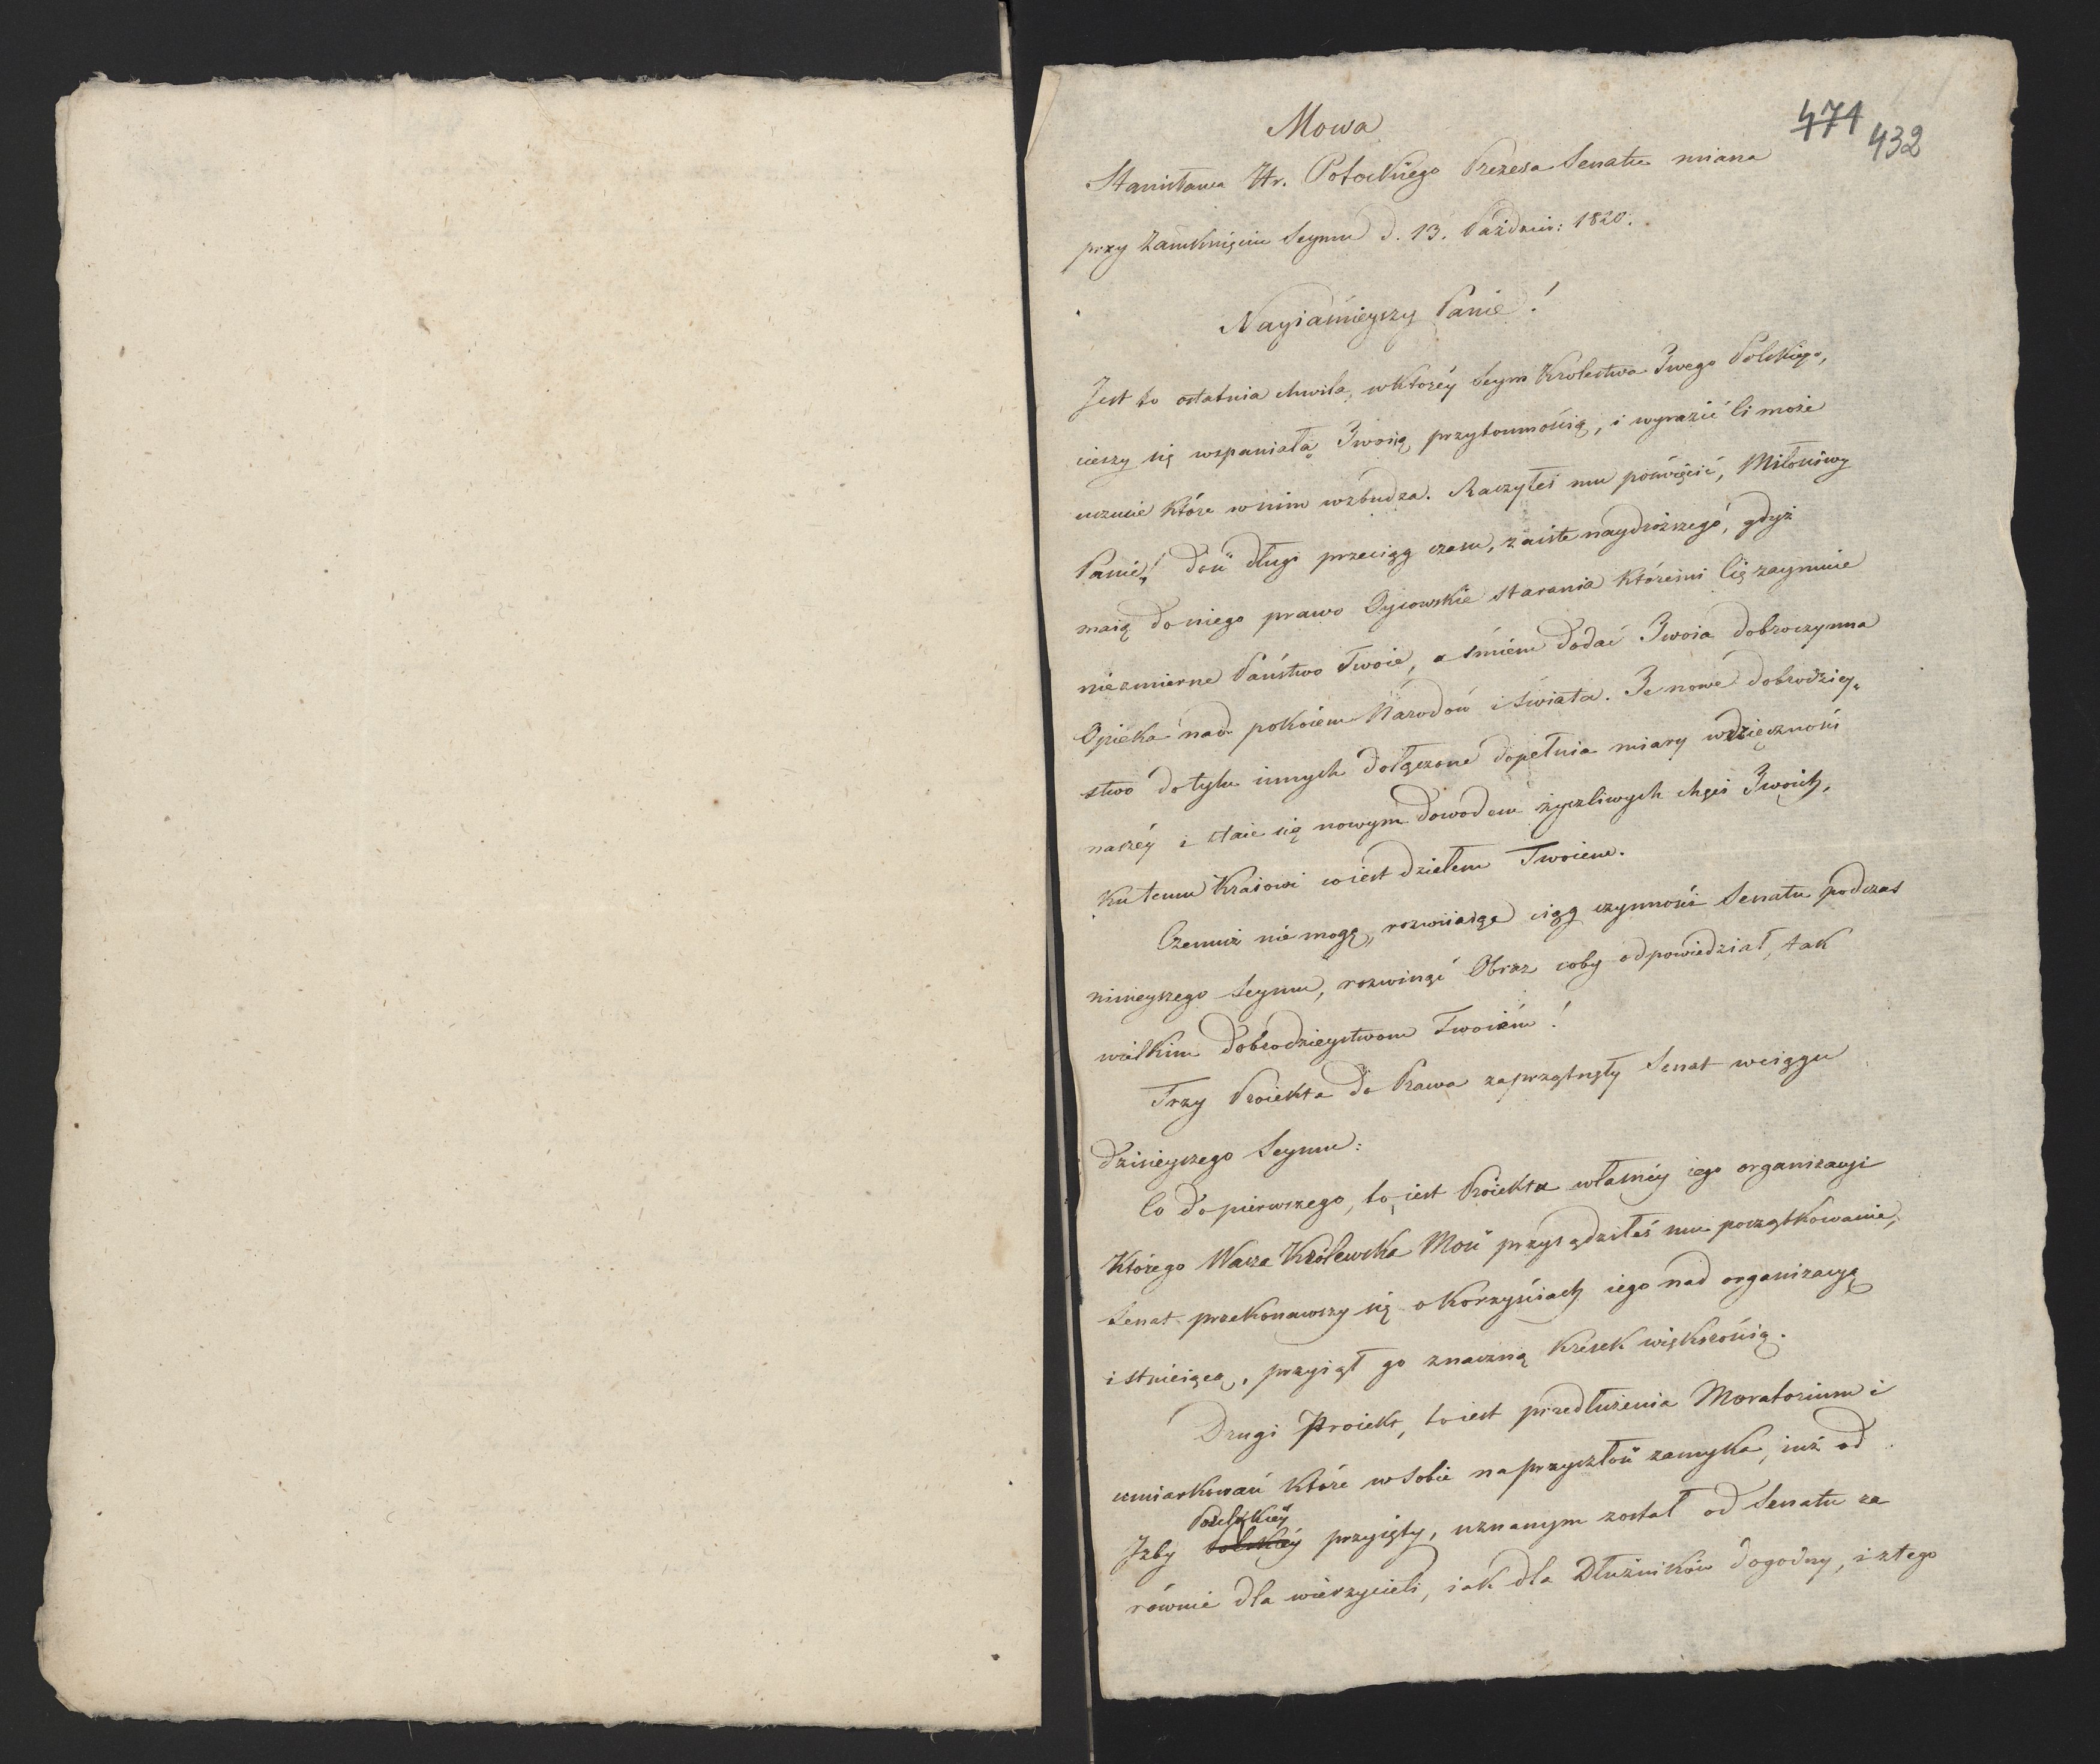 Mowa
471 432
Stanisława Hr. Potockiego Prezesa Senatu miana
przy Zamknięciu Seymu d. 13. Paździer: 1820.
Nayiaśnieyszy Panie!
Jest to ostatnia chwila, w którey Seym Królestwa Twego Polskiego,
cieszy się wspaniałą Twoią przytomnością, i wyrazić Ci może
uczucie które w nim wzbudza. Raczyłeś mu poświęcić, Miłościwy
Panie! dość długi przeciąg czasu, zaiste naydroższego, gdyż
maią do niego prawo Oycowskie starania któremi Cię zaymuie
niezmierne Państwo Twoie, a śmiem dodać Twoia dobroczynna
Opieka nad pokoiem Narodów i Świata. Te nowe dobrodziey„
stwo do tylu innych dołączone dopełnia miary wdzięczności
naszéy i staie się nowym dowodem życzliwych chęci Twoich,
ku temu Kraiowi co iest dziełem Twoiem.
Czemuż nie mogę, rozwiiaiąc ciąg czynności Senatu podczas
ninieyszego Seymu, rozwinąć Obraz coby odpowiedział, tak
wielkim dobrodzieystwom Twoiém!
Trzy Proiekta do Prawa zaprzątnęły Senat w ciągu
dzisieyszego Seymu:
Co do pierwszego, to iest Proiektu własnéy iego organizacyi
którego Wasza Królewska Mość przysądziłeś mu początkowanie,
Senat przekonawszy się o korzyściach iego nad organizacyą
istnieiącą, przyiął go znaczną kresek większością.
Drugi Proiekt, to iest przedłużenia Moratorium i
umiarkowań które w sobie na przyszłość zamyka, iuż od
Poselskiéy
Izby Polskiéy przyięty, uznanym został od Senatu za
równie dla wierzycieli, iak dla Dłużników dogodny, i z tego